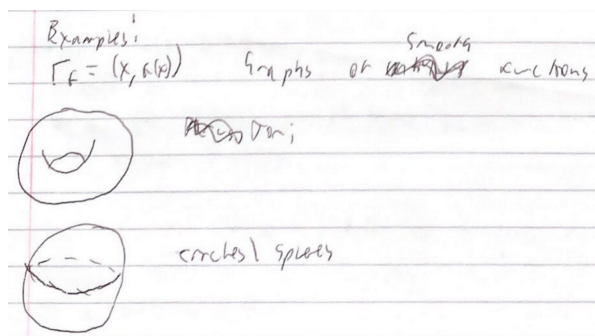 Examples:
Γf = (x, f(x)) Graphs of smooth functions
Tori
circles \ spheres